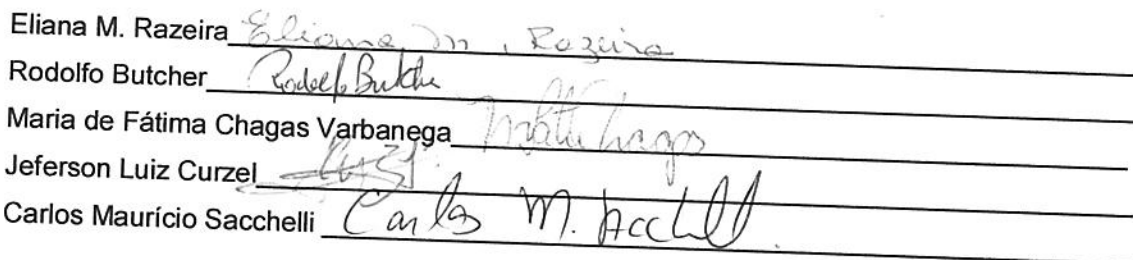 Eliana M. Razeira Eliana M. Razeira
Rodolfo Butcher Rodolfo Butcher
Maria de Fátima Chagas Varbanega
Jeferson Luiz Curzel
Carlos Maurício Sacchelli Carlos M. Sacchelli